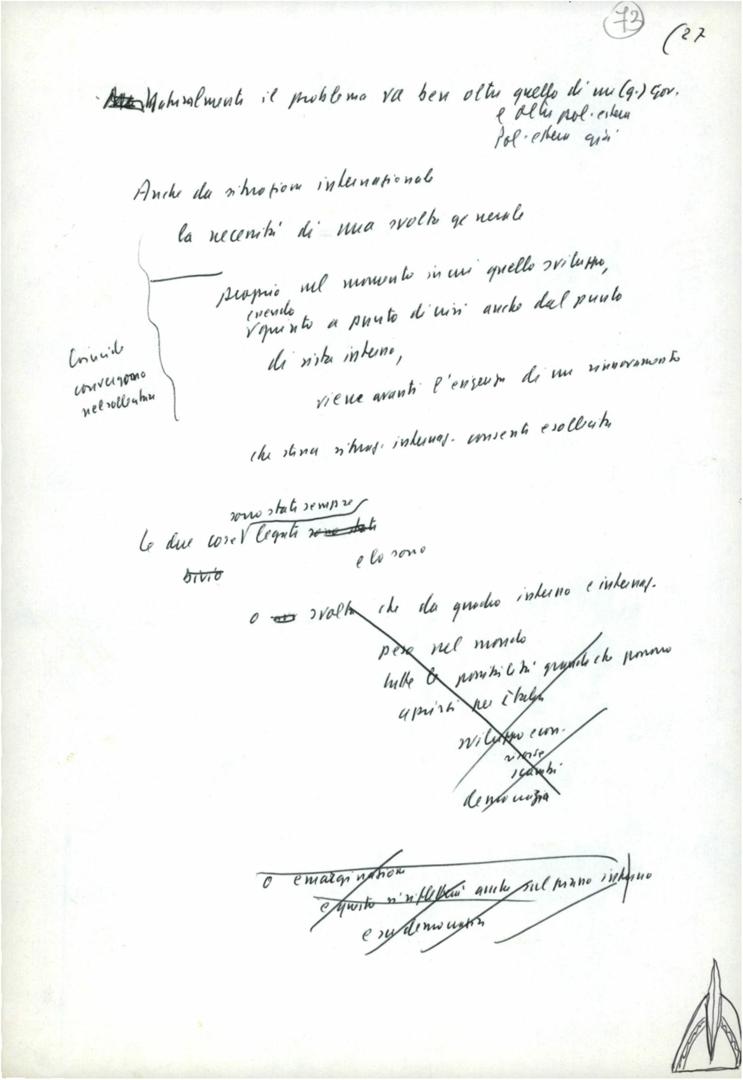 72
(27
Naturalmente il problema va ben oltre quello di un (q.) gov.
e oltre pol. estera
Pol. estera qui
Anche da situazione internazionale
la necessità di una svolta generale
proprio nel momento in cui quello sviluppo,
essendo
giunto a punto di crisi anche dal punto
di vista interno,
viene avanti l'esigenza di un rinnovamento
Coincide
convergono
nel sollecitare
che stessa situaz. internaz. consente e sollecita
sono stati sempre
Le due cose legate sono state
e lo sono
bivio
o svolta che da quadro interno e internaz.
pesa nel mondo
tutte le possibilità grandi che possono
aprirsi per Italia
sviluppo econ.
risorse
scambi
democrazia
o emarginazione
e questo si rifletterà anche sul piano interno
e su democrazia